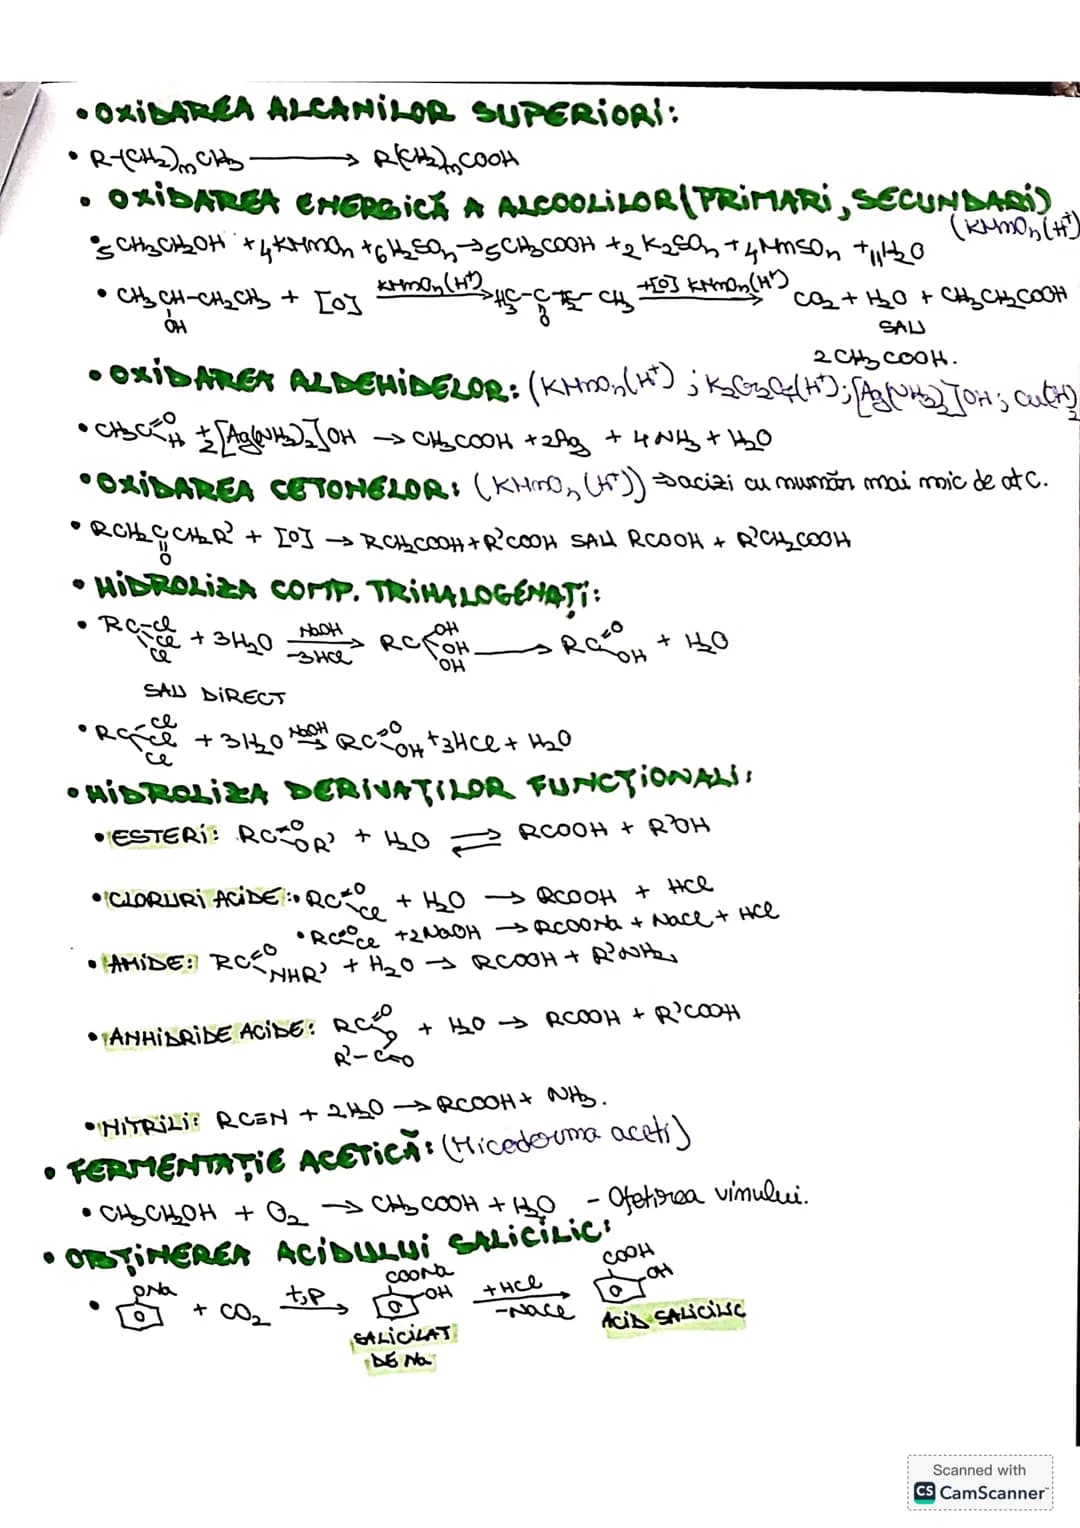 • OXIDAREA ALCANILOR SUPERIORI:
• R-(CH₂)ₙCH₃ ⟶ R(CH₂)ₙCOOH
• OXIDAREA ENERGICĂ A ALCOOLILOR (PRIMARI, SECUNDARI)
(KMnO₄(H⁺)
• 5CH₃CH₂OH + 4KMnO₄ + 6H₂SO₄ → 5CH₃COOH + 2K₂SO₄ + 4MnSO₄ + 11H₂O
• CH₃CH-CH₂CH₃ + [O] KMnO₄(H⁺) → H₃C-C- CH₃ +[O] KMnO₄(H⁺) → CO₂ + H₂O + CH₃CH₂COOH
OH O SAU
2CH₃COOH.
• OXIDAREA ALDEHIDELOR: (KMnO₄(H⁺) ; K₂Cr₂O₇(H⁺); [Ag(NH₃)₂]OH; Cu(OH)₂
• CH₃C=O H + 2[Ag(NH₃)₂]OH → CH₃COOH + 2Ag + 4NH₃ + H₂O
• OXIDAREA CETONELOR: (KMnO₄(H⁺)) ⇒ acizi cu număr mai mic de at C.
• RCH₂CCH₂R' + [O] → RCH₂COOH + R'COOH SAU RCOOH + R'CH₂COOH
O
• HIDROLIZA COMP. TRIHALOGENAȚI:
• RC-Cl Cl Cl + 3H₂O NaOH → -3HCl RC OH OH OH ⟶ RC=O OH + H₂O
SAU DIRECT
• RC-Cl Cl Cl + 3H₂O NaOH → RC=O OH + 3HCl + H₂O
• HIDROLIZA DERIVAȚILOR FUNCȚIONALI:
• ESTERI: RC=O OR' + H₂O ⇌ RCOOH + R'OH
• CLORURI ACIDE: • RC=O Cl + H₂O → RCOOH + HCl
• RC=O Cl + 2NaOH → RCOONa + NaCl + HCl
• AMIDE: RC=O NHR' + H₂O → RCOOH + R'NH₂
• ANHIDRIDE ACIDE: RC=O O + H₂O → RCOOH + R'COOH
R'-C=O
• NITRILI: RC≡N + 2H₂O → RCOOH + NH₃.
• FERMENTAȚIE ACETICĂ: (Micoderma aceti)
• CH₃CH₂OH + O₂ → CH₃COOH + H₂O - Oțetirea vinului.
• OBȚINEREA ACIDULUI SALICILIC:
• ONa + CO₂ t,P → COONa OH +HCl → -NaCl COOH OH
SALICILAT DE Na
ACID SALICILIC
Scanned with
CS CamScanner